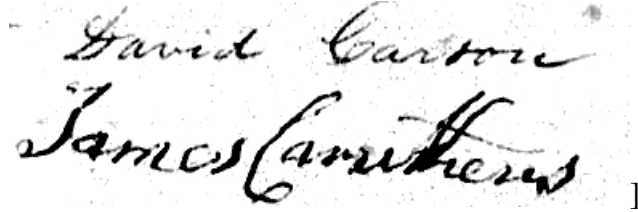 David Carson
James Caruthers
]